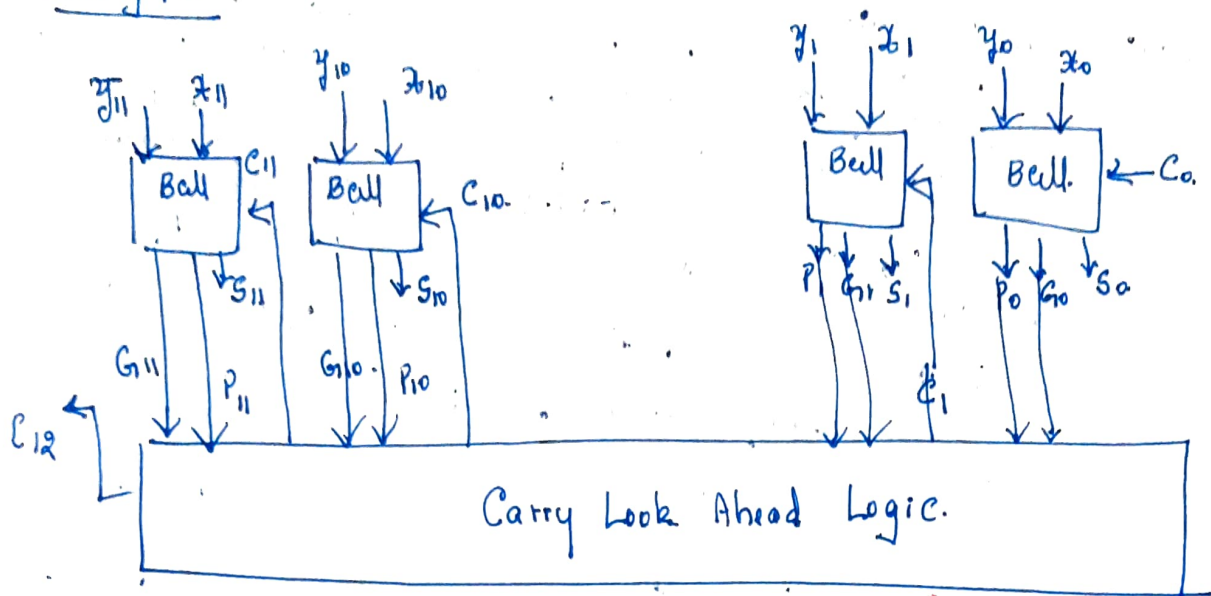 y11 x11 y10 x10 y1 x1 y0 x0
Ball C11 Bell C10. Bell Bell. C0.
S11 S10 P1 G1 S1 P0 G0 S0
G11 P11 G10 P10 C1
C12
Carry Look Ahead Logic.